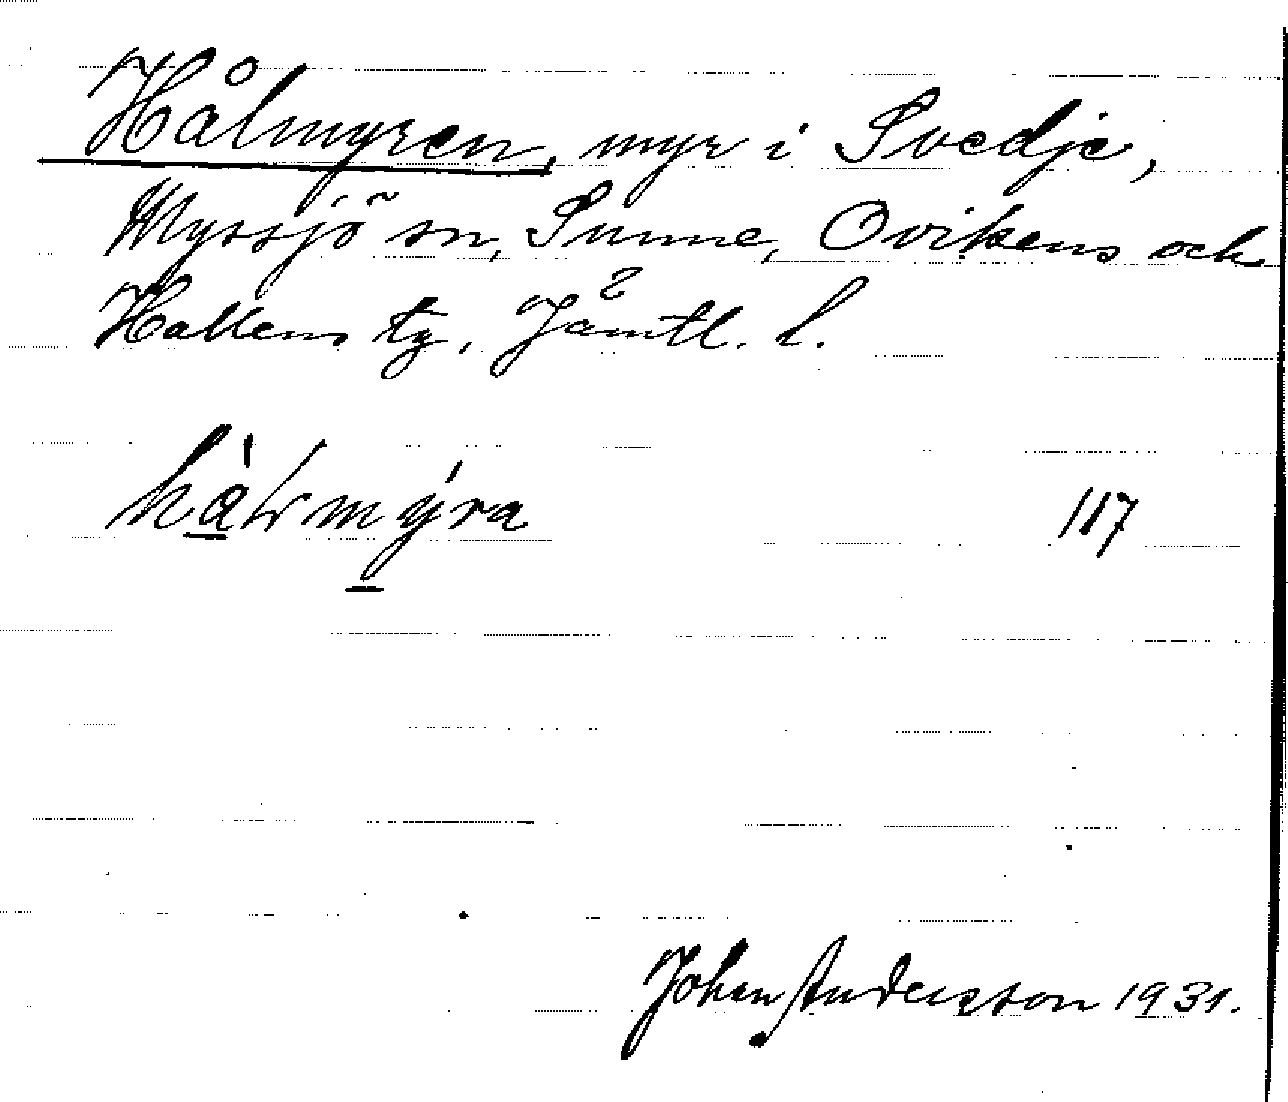 Hålmyren, myr i Svedje,
Myssjö sn, Sunne, Ovikens och
Hallens tg, Jämtl. l.
hàlmýra 117
Johan Andersson 1931.